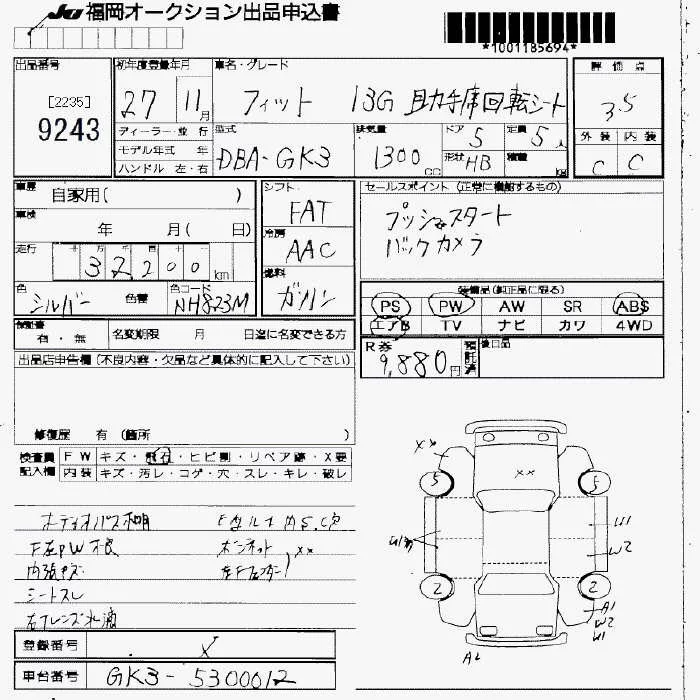 JU 福岡オークション出品申込書
*1001185694*
出品番号
[2235]
9243
初年度登録年月
27 11月
ディーラー・並行
モデル年式 年
ハンドル 左・右
車名・グレード
フィット 13G 助手席回転シート
型式
DBA-GK3
排気量
1300cc
ドア
5
形状
HB
定員
5人
積載
kg
評価点
3.5
外装 内装
C C
車歴
自家用( )
車検
年 月( 日)
走行
十 万 千 百 十 一
32200km
色
シルバー 色替
色コード
NH823M
シフト
FAT
冷房
AAC
燃料
ガソリン
セールスポイント (正常に機能するもの)
プッシュスタート
バックカメラ
装備品(純正品に限る)
PS PW AW SR ABS
エアB TV ナビ カワ 4WD
有・無
名変期限 月 日迄に名変できる方
R券
9,880円
預託済
後日品
出品店申告欄 (不良内容・欠品など具体的に記入して下さい)
修復歴 有 (箇所 )
検査員
記入欄
FW キズ・飛石・ヒビ割・リペア跡・X要
内装 キズ・汚レ・コゲ・穴・スレ・キレ・破レ
F左PW不良
ボンネット
××
内張キズ
左Fフェンダー
シートスレ
××
××
5
5
U1
W2
2
2
A1
W2
U1
A2
登録番号
車台番号
GK3-5300012